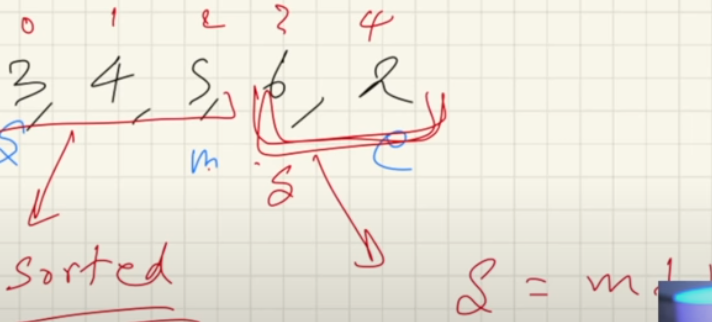 0 1 2 3 4
3, 4, 5, 6, 2
S m e
S
Sorted
S = m+